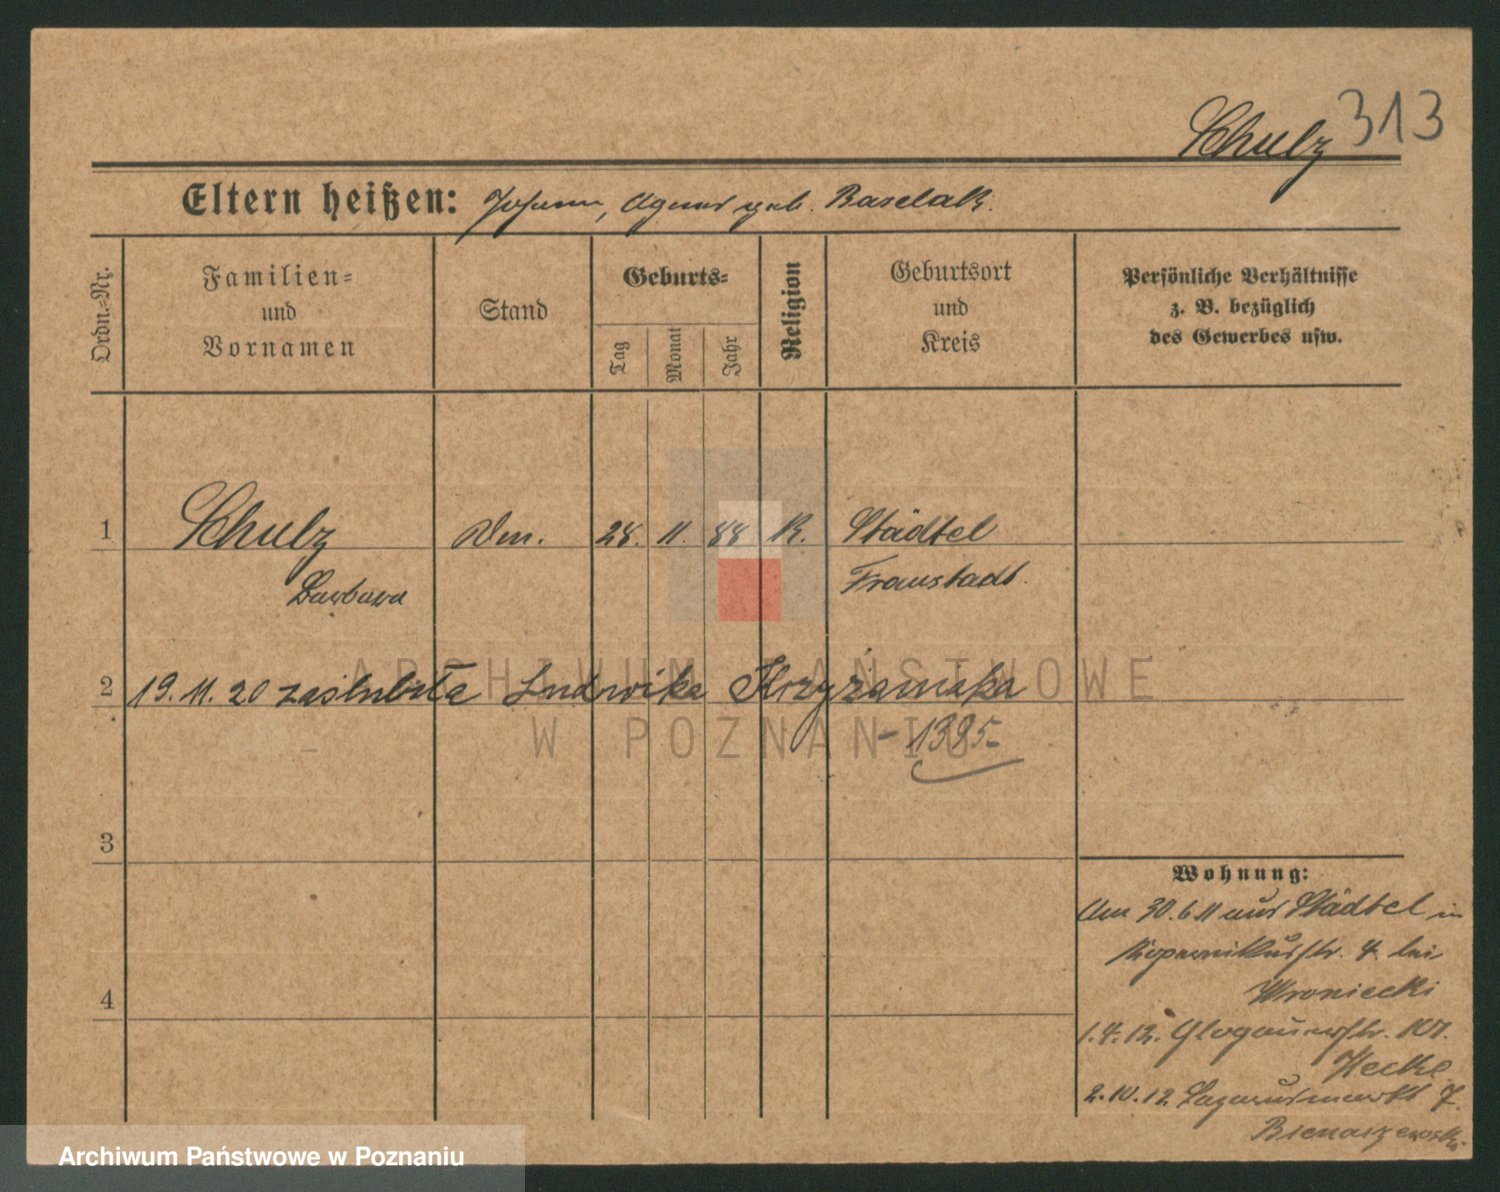 Schulz 313
Eltern heißen: Johann, Agnes geb. Baselak.
Ordn.-Nr.
Familien-
und
Vornamen
Stand
Geburts-
Tag
Monat
Jahr
Religion
Geburtsort
und
Kreis
Persönliche Verhältnisse
z. B. bezüglich
des Gewerbes usw.
1 Schulz Dm. 28. 11. 88 K. Städtel
Barbara Fraustadt.
2 19.11.20 zaślubiła Ludwika Krzyżaniaka
- 1395-
3
4
Wohnung:
Am 30.6.11 aus Städtel in
Kopernikusstr. 4. bei
Wroniecki
1.4.12. Glogauerstr. 107.
Hecke
2.10.12 Lazarusmarkt 7.
Bienaszewski
ARCHIWUM PAŃSTWOWE
W POZNANIU
Archiwum Państwowe w Poznaniu